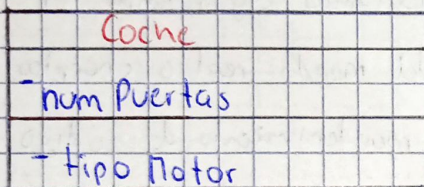 Coche
- num Puertas
- tipo Motor